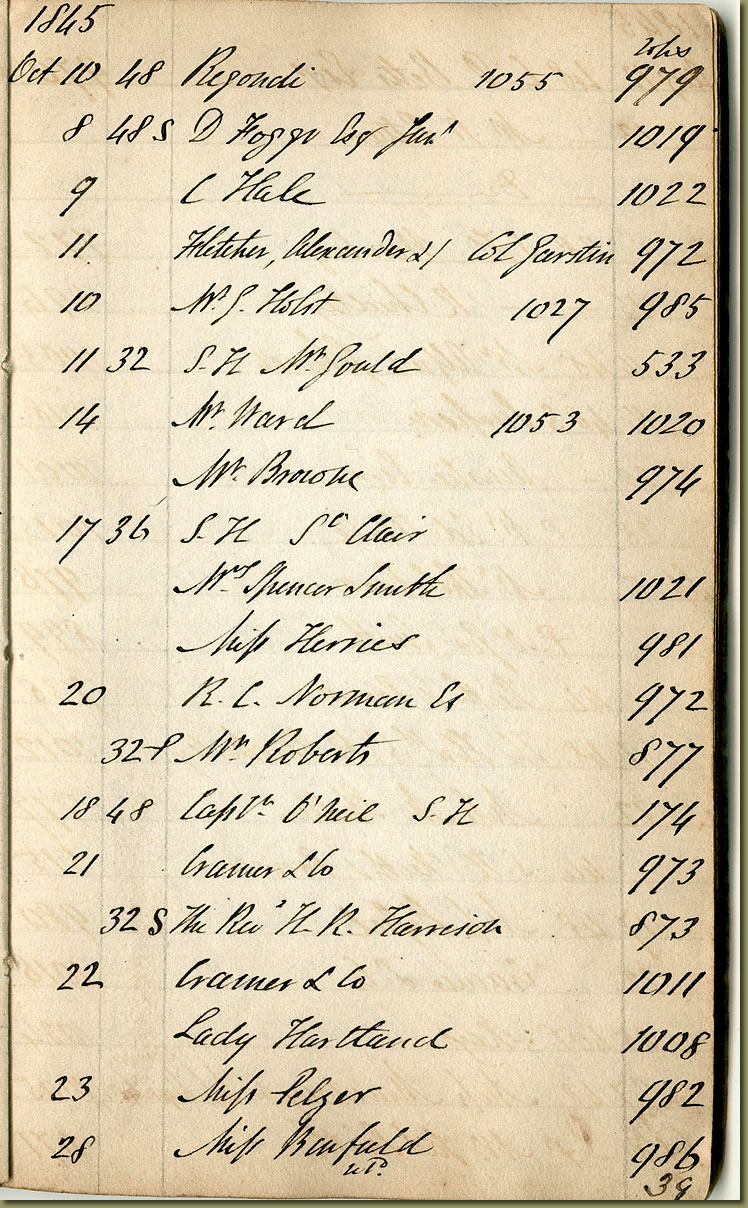 1845
Oct 10 48 Regondi 1055 979
8 48 S D Foggo Esq Junr 1019
9 C Hale 1022
11 Fletcher, Alexander &/ Col Garstin 972
10 Mr. G. Holst 1027 985
11 32 S-H Mr Gould 533
14 Mr. Ward 1053 1020
Mr. Browne 974
17 36 S-H St Clair
Mrs Spencer Smith 1021
Miss Herries 981
20 R. C. Norman Es 972
32 Mr Roberts 877
18 48 Captn. O'Neil S-H 174
21 Cramer & Co 973
32 S The Revd H. R. Harrison 873
22 Cramer & Co 1011
Lady Hartland 1008
23 Miss Pelzer 982
28 Miss Benfield 986
39